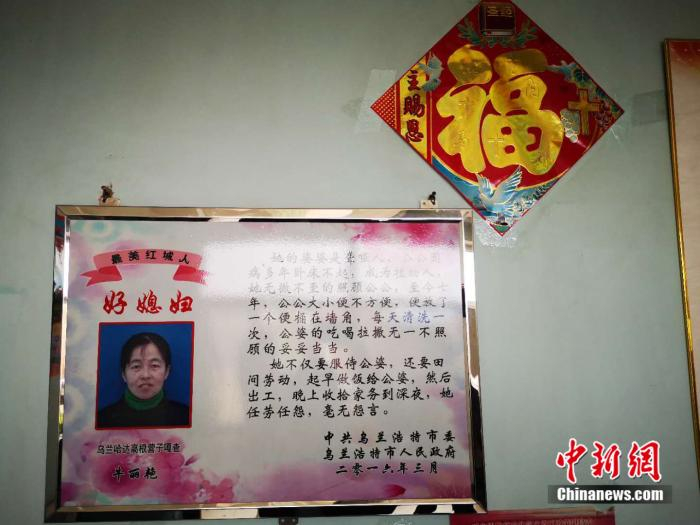 主賜恩
福
最美红城人
好媳妇
她的婆婆是聋哑人，公公因
病多年卧床不起，成为植物人，
她无微不至的照顾公公，至今七
年，公公大小便不方便，便放了
一个便桶在墙角，每天清洗一
次，公婆的吃喝拉撒无一不照
顾的妥妥当当。
她不仅要服侍公婆，还要田
间劳动，起早做饭给公婆，然后
出工，晚上收拾家务到深夜，她
任劳任怨，毫无怨言。
中共乌兰浩特市委
乌兰浩特市人民政府
二〇一六年三月
乌兰哈达高根营子嘎查
牛丽艳
中新网
Chinanews.com